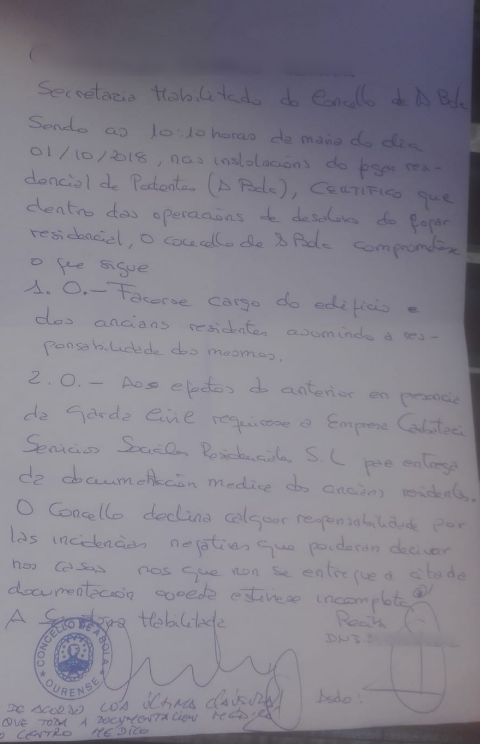 Secretaria Habilitada do Concello de A Bola
Sendo as 10:10 horas da mañá do día
01/10/2018, nas instalacións do fogar resi-
dencial de Podentes (A Bola), CERTIFICO que
dentro das operacións de desaloxo do fogar
residencial, o concello de A Bola comprométese
o que sigue
1. O.- Facerse cargo do edificio e
dos anciáns residentes asumindo a res-
ponsabilidade dos mesmos.
2. O.- Aos efectos do anterior en presencia
da Garda Civil requírese a Empresa
Servicios Sociales Residenciales S.L para entrega
da documentación medica dos anciáns residentes.
O Concello declina calquer responsabilidade por
las incidencias negativas que poideran derivar
nos casos nos que non se entregue a citada
documentación ou esta estivese incompleta
A Secretaria Habilitada
Recibí
DNI
CONCELLO DE A BOLA
OURENSE
Dado:
DE ACORDO COA ÚLTIMA CLÁUSULA
QUE TODA A DOCUMENTACION MEDICA
O CENTRO MEDICO